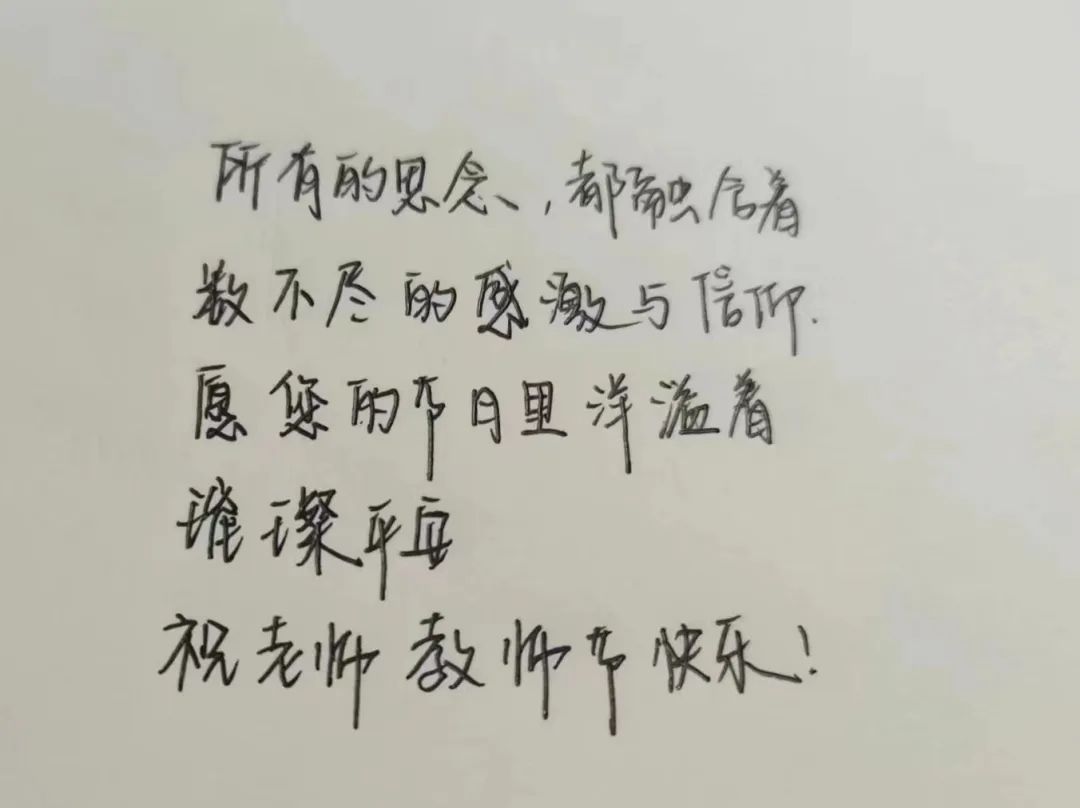 所有的思念,都融含着
数不尽的感激与信仰.
愿您的节日里洋溢着
璀璨平安
祝老师教师节快乐!